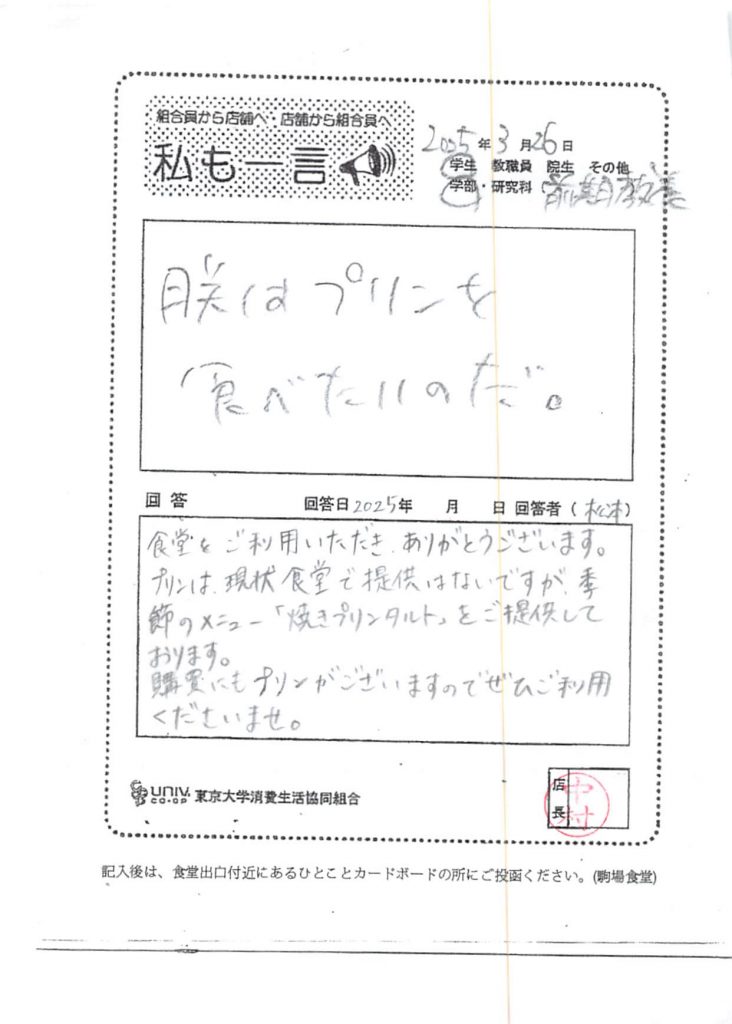 組合員から店舗へ・店舗から組合員へ
私も一言
2025年3月26日
学生 教職員 院生 その他
学部・研究科(前期教養
朕はプリンを
食べたいのだ。
回答 回答日2025年 月 日 回答者(松本)
食堂をご利用いただき、ありがとうございます。
プリンは、現状食堂で提供はないですが、季
節のメニュー「焼きプリンタルト」をご提供して
おります。
購買にもプリンがございますのでぜひご利用
くださいませ。
UNIV.
CO-OP 東京大学消費生活協同組合
店長
中村
記入後は、食堂出口付近にあるひとことカードボードの所にご投函ください。(駒場食堂)